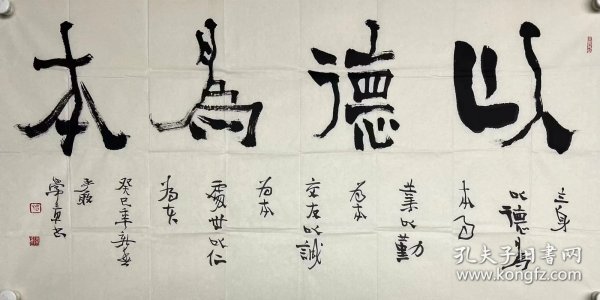 以德為本
立身
以德為
本
業以勤
為本
交友以誠
為本
處世以仁
為本
癸巳年新春
孔夫子旧书网
www.kongfz.com